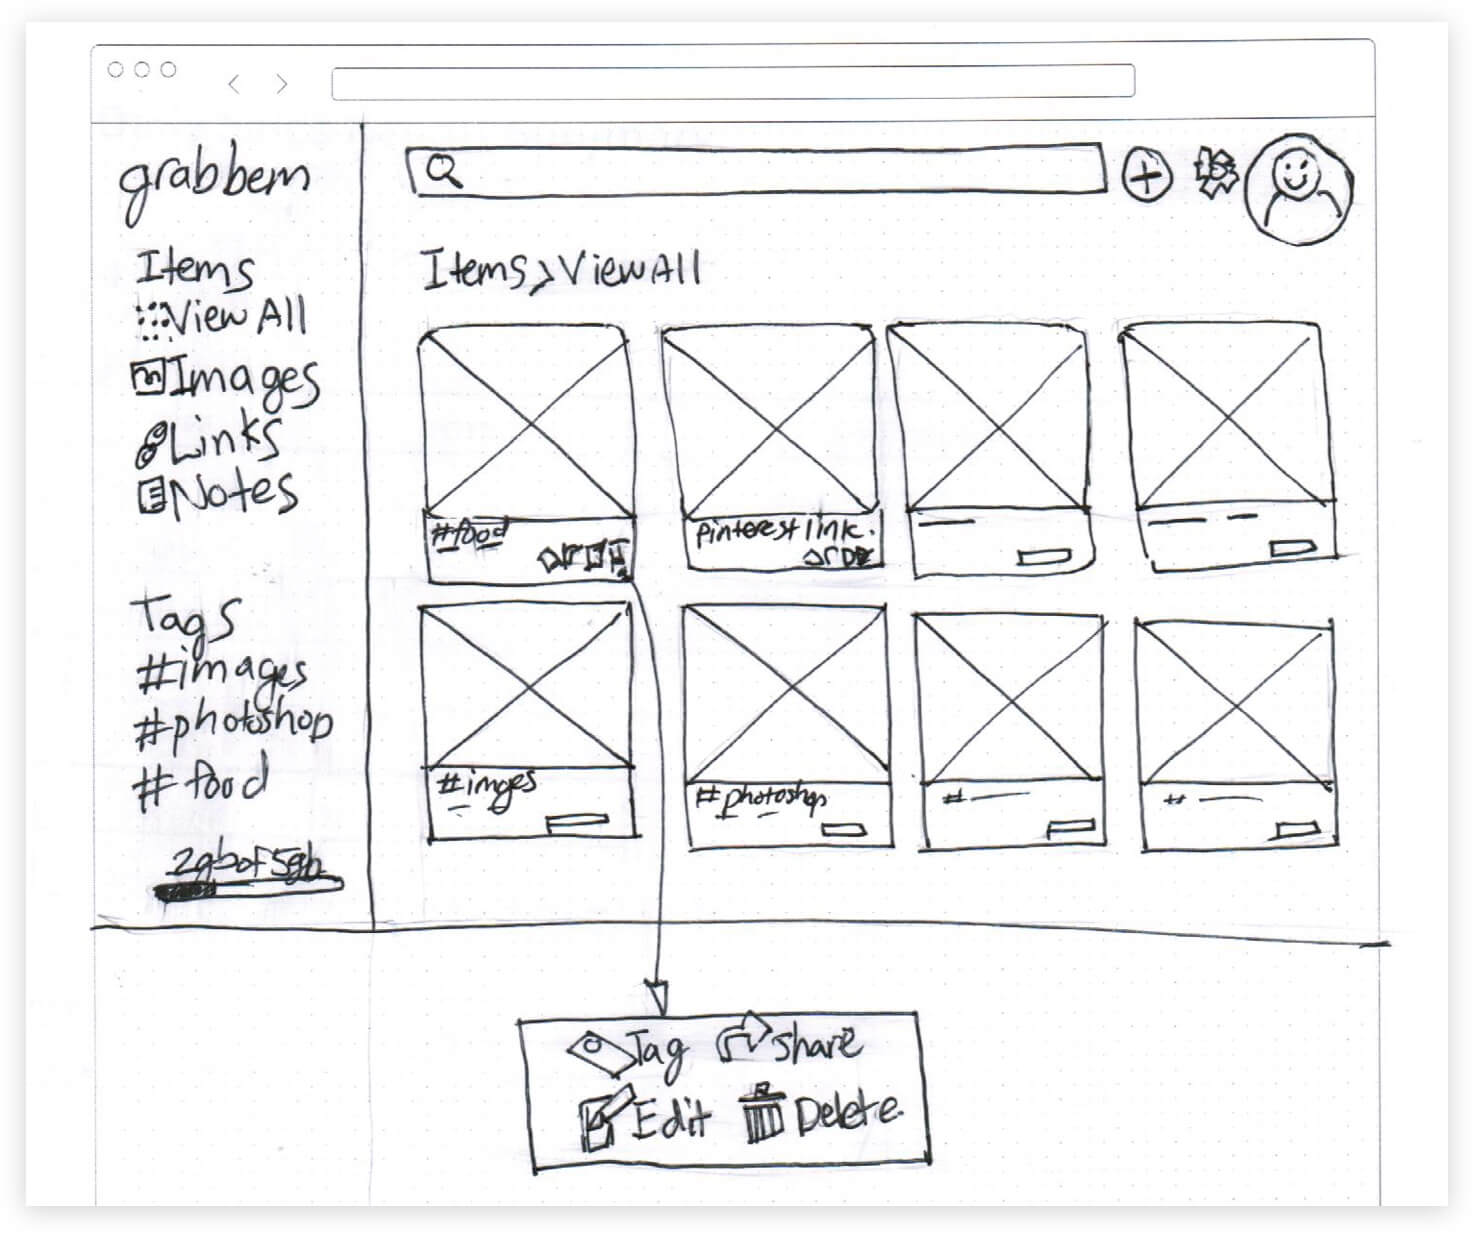 grabbem
Items
View All
Images
Links
Notes
Tags
#images
#photoshop
# food
2gb of 5gb
Items > View All
#food
pinterest link.
#imges
#photoshop
#
#
Tag
share
Edit
Delete